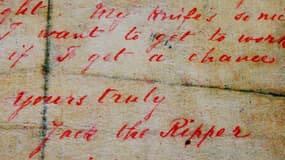 ght My knife's so nice
I want to get to work
if I get a chance
Yours truly
Jack the Ripper